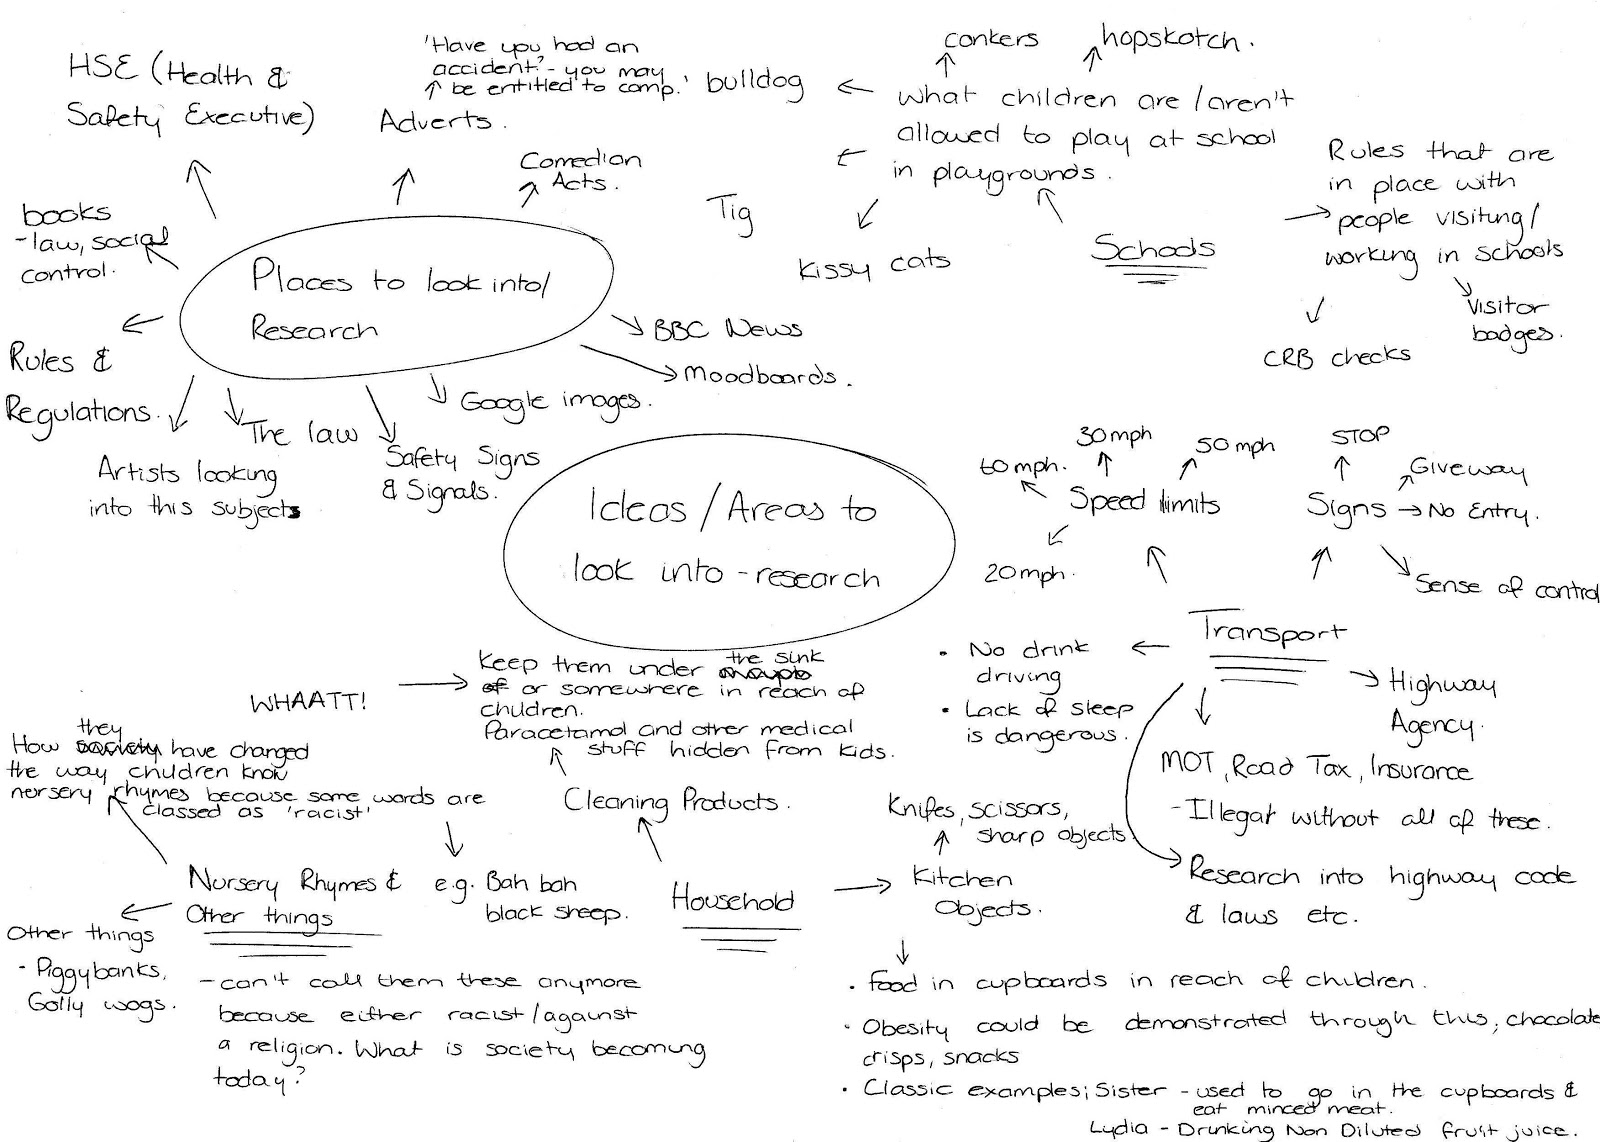 HSE (Health &
Safety Executive)
'Have you had an
accident?'- you may
be entitled to comp.'
Adverts.
Comedian
Acts.
books
- law, social
control.
Places to look into/
Research
Rules &
Regulations.
Artists looking
into this subjects
The law
Safety Signs
& Signals.
Google images.
BBC News
Moodboards.
conkers
hopskotch.
bulldog
What children are / aren't
allowed to play at school
in playgrounds.
Tig
Kissy cats
Schools
Rules that are
in place with
people visiting/
working in schools
Visitor
badges.
CRB checks
Ideas / Areas to
look into - research
60mph.
30mph
50mph
Speed limits
20mph.
STOP
Giveway
Signs
No Entry.
Sense of control
Transport
• No drink
driving
• Lack of sleep
is dangerous.
Highway
Agency.
MOT, Road Tax, Insurance
- Illegal without all of these.
Research into highway code
& laws etc.
WHAATT!
Keep them under the sink
of or somewhere in reach of
children.
Paracetamol and other medical
stuff hidden from kids.
Cleaning Products.
Household
Knifes, scissors,
sharp objects
Kitchen
Objects.
• Food in cupboards in reach of children.
• Obesity could be demonstrated through this, chocolate
crisps, snacks
• Classic examples; Sister - used to go in the cupboards &
eat minced meat.
Lydia - Drinking Non Diluted fruit juice.
they
How society have changed
the way children know
nersery rhymes because some words are
classed as 'racist'
e.g. Bah bah
black sheep.
Nursery Rhymes &
Other things
Other things
- Piggybanks,
Golly wogs.
- can't call them these anymore
because either racist/against
a religion. What is society becoming
today?